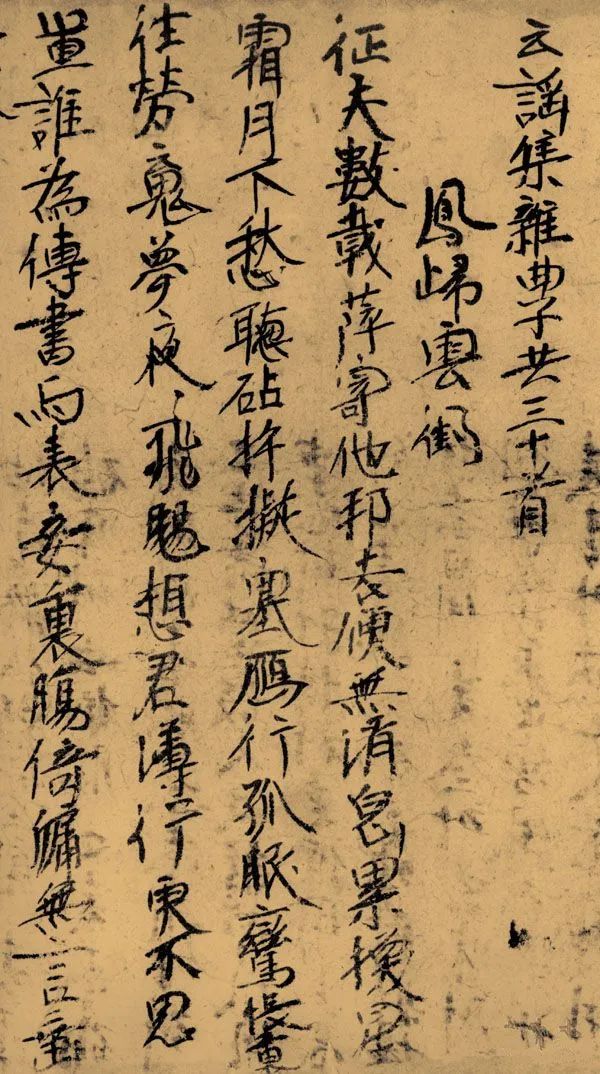 云謡集雜曲子共三十首
鳳歸雲
征夫數載萍寄他邦去便無消息累換星
霜月下愁聽砧杵擬塞鴈行孤眠鸞帳裏
往勞魂夢夜〻飛颺想君薄行更不思
量誰為傳書与表妾裏腸倚牖無言垂